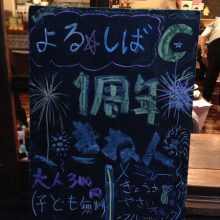 よる☆しば
1周年
きねん
大人300円
(子ども無料)
メニュー
ぎょうざ
やさい